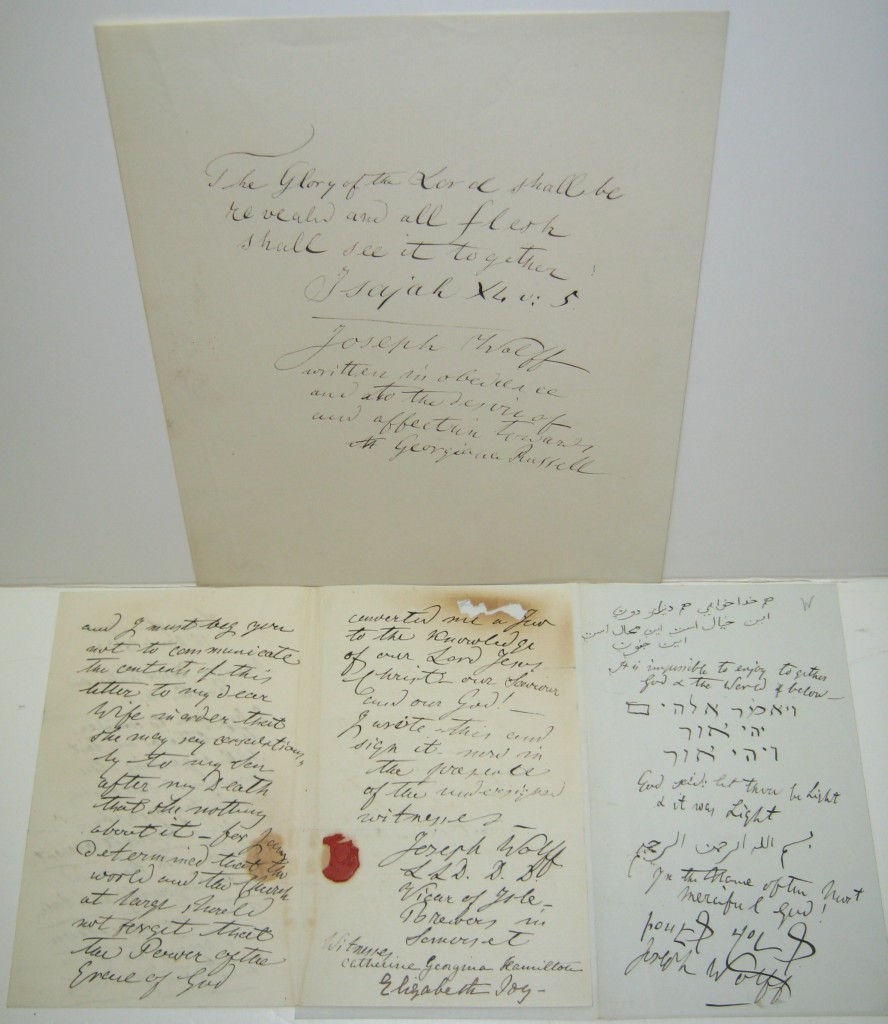 The Glory of the Lord shall be
revealed and all flesh
shall see it together
Isajah XL v: 5
Joseph Wolff
written in obedience
and to the desire of
and affection towards
Georgiana Russell
and I must beg you
not to communicate
the contents of this
letter to my dear
Wife in order that
she may say
to my
after my Death
that she nothing
about it – for I am
determined that the
world and the Church
at large should
not forget that
the Power of the
Grace of God
converted me a Jew
to the Knowledge
of our Lord Jesus
Christ our Saviour
and our God! –
I write this and
sign it now in
the presence
of the undersigned
witnesses –
Joseph Wolff
LLD. D. D
Vicar of Isle-
Brewers in
Somerset
Witnesses
Catherine Georgina Hamilton
Elizabeth Joy –
هم خدا خواهی هم دنیای دون
این خیال است این محال است
این جنون
It is impossible to enjoy together
God & the World below –
ויאמר אלהים
יהי אור
ויהי אור
God said: let there be Light
& it was Light
بسم الله الرحمن الرحيم
In the Name of the Most
merciful God!
Joseph Wolff